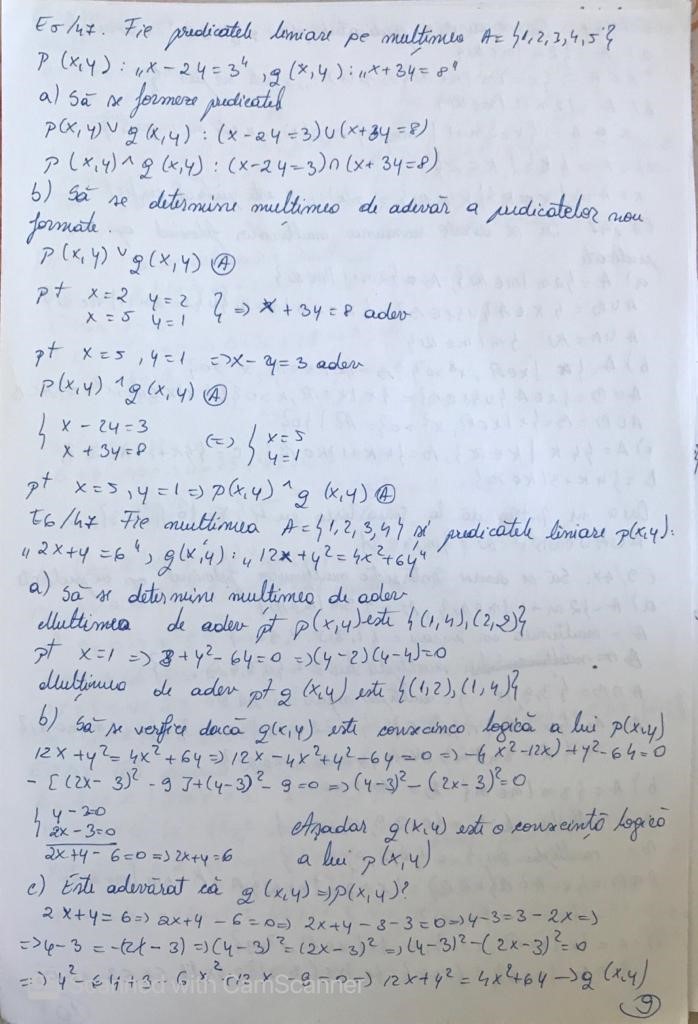 E5/47. Fie predicatele liniare pe mulțimea A={1,2,3,4,5}
p(x,y): „x-2y=3", q(x,y): „x+3y=8"
a) Să se formeze predicatele
p(x,y) ∨ q(x,y): (x-2y=3)∪(x+3y=8)
p(x,y) ∧ q(x,y): (x-2y=3)∩(x+3y=8)
b) Să se determine mulțimea de adevăr a predicatelor nou
formate.
p(x,y) ∨ q(x,y) Ⓐ
pt x=2 y=2 } => x+3y=8 adev
x=5 y=1
pt x=5, y=1 => x-2y=3 adev
p(x,y) ∧ q(x,y) Ⓐ
{ x-2y=3 (=) { x=5
x+3y=8 y=1
pt x=5, y=1 => p(x,y) ∧ q(x,y) Ⓐ
E6/47 Fie mulțimea A={1,2,3,4} și predicatele liniare p(x,y):
„2x+y=6", q(x,y): „12x+y²=4x²+6y"
a) Să se determine mulțimea de adev
Mulțimea de adev pt p(x,y) este {(1,4),(2,2)}
pt x=1 => 8+y²-6y=0 =>(y-2)(y-4)=0
Mulțimea de adev pt q(x,y) este {(1,2),(1,4)}
b) Să se verifice dacă q(x,y) este consecința logică a lui p(x,y)
12x+y²=4x²+6y => 12x-4x²+y²-6y=0 => -(x²-12x)+y²-6y=0
-[(2x-3)²-9]+(y-3)²-9=0 => (y-3)²-(2x-3)²=0
{ y-3=0
2x-3=0 Așadar q(x,y) este o consecință logică
2x+y-6=0 => 2x+y=6 a lui p(x,y)
c) Este adevărat că q(x,y) => p(x,y)?
2x+y=6 => 2x+y-6=0 => 2x+y-3-3=0 => y-3=3-2x =>
=> y-3=-(2x-3) => (y-3)²=(2x-3)² => (y-3)²-(2x-3)²=0
12x+y²=4x²+6y -> q(x,y)
Scanned with CamScanner
9